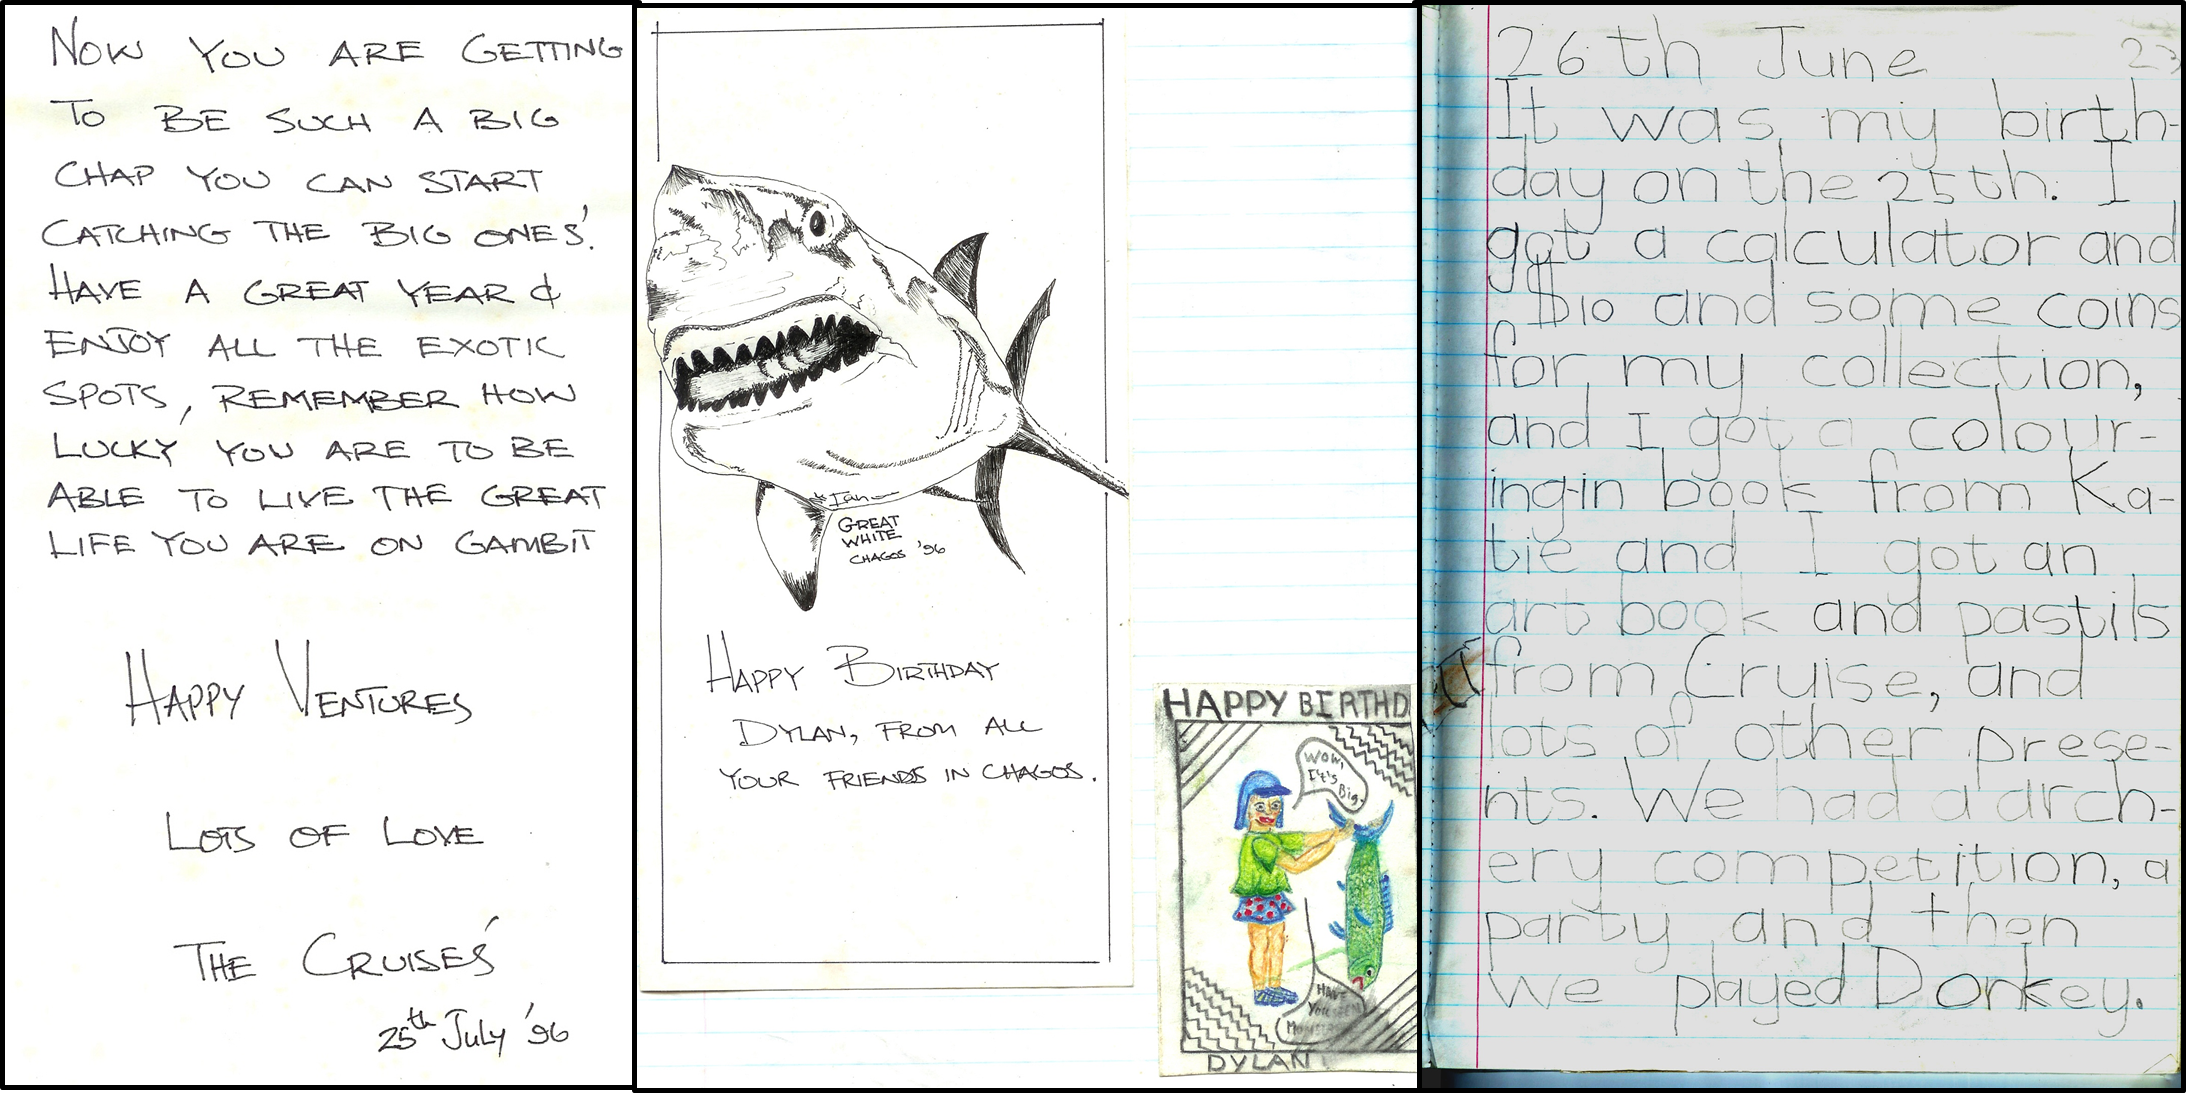 NOW YOU ARE GETTING
TO BE SUCH A BIG
CHAP YOU CAN START
CATCHING THE BIG ONES'.
HAVE A GREAT YEAR &
ENJOY ALL THE EXOTIC
SPOTS, REMEMBER HOW
LUCKY YOU ARE TO BE
ABLE TO LIVE THE GREAT
LIFE YOU ARE ON GAMBIT
HAPPY VENTURES
LOTS OF LOVE
THE CRUISES'
25th July '96
Ian
GREAT
WHITE
CHAGOS '96
HAPPY BIRTHDAY
DYLAN, FROM ALL
YOUR FRIENDS IN CHAGOS.
HAPPY BIRTHD
WOW,
It's
Big.
HAVE
YOU SEEN
DYLAN
26th June 23
It was my birth-
day on the 25th. I
got a calculator and
$10 and some coins
for my collection,
and I got a colour-
ing-in book from Ka-
tie and I got an
art book and pastils
from Cruise, and
lots of other prese-
nts. We had a arch-
ery competition, a
party and then
we played Donkey.